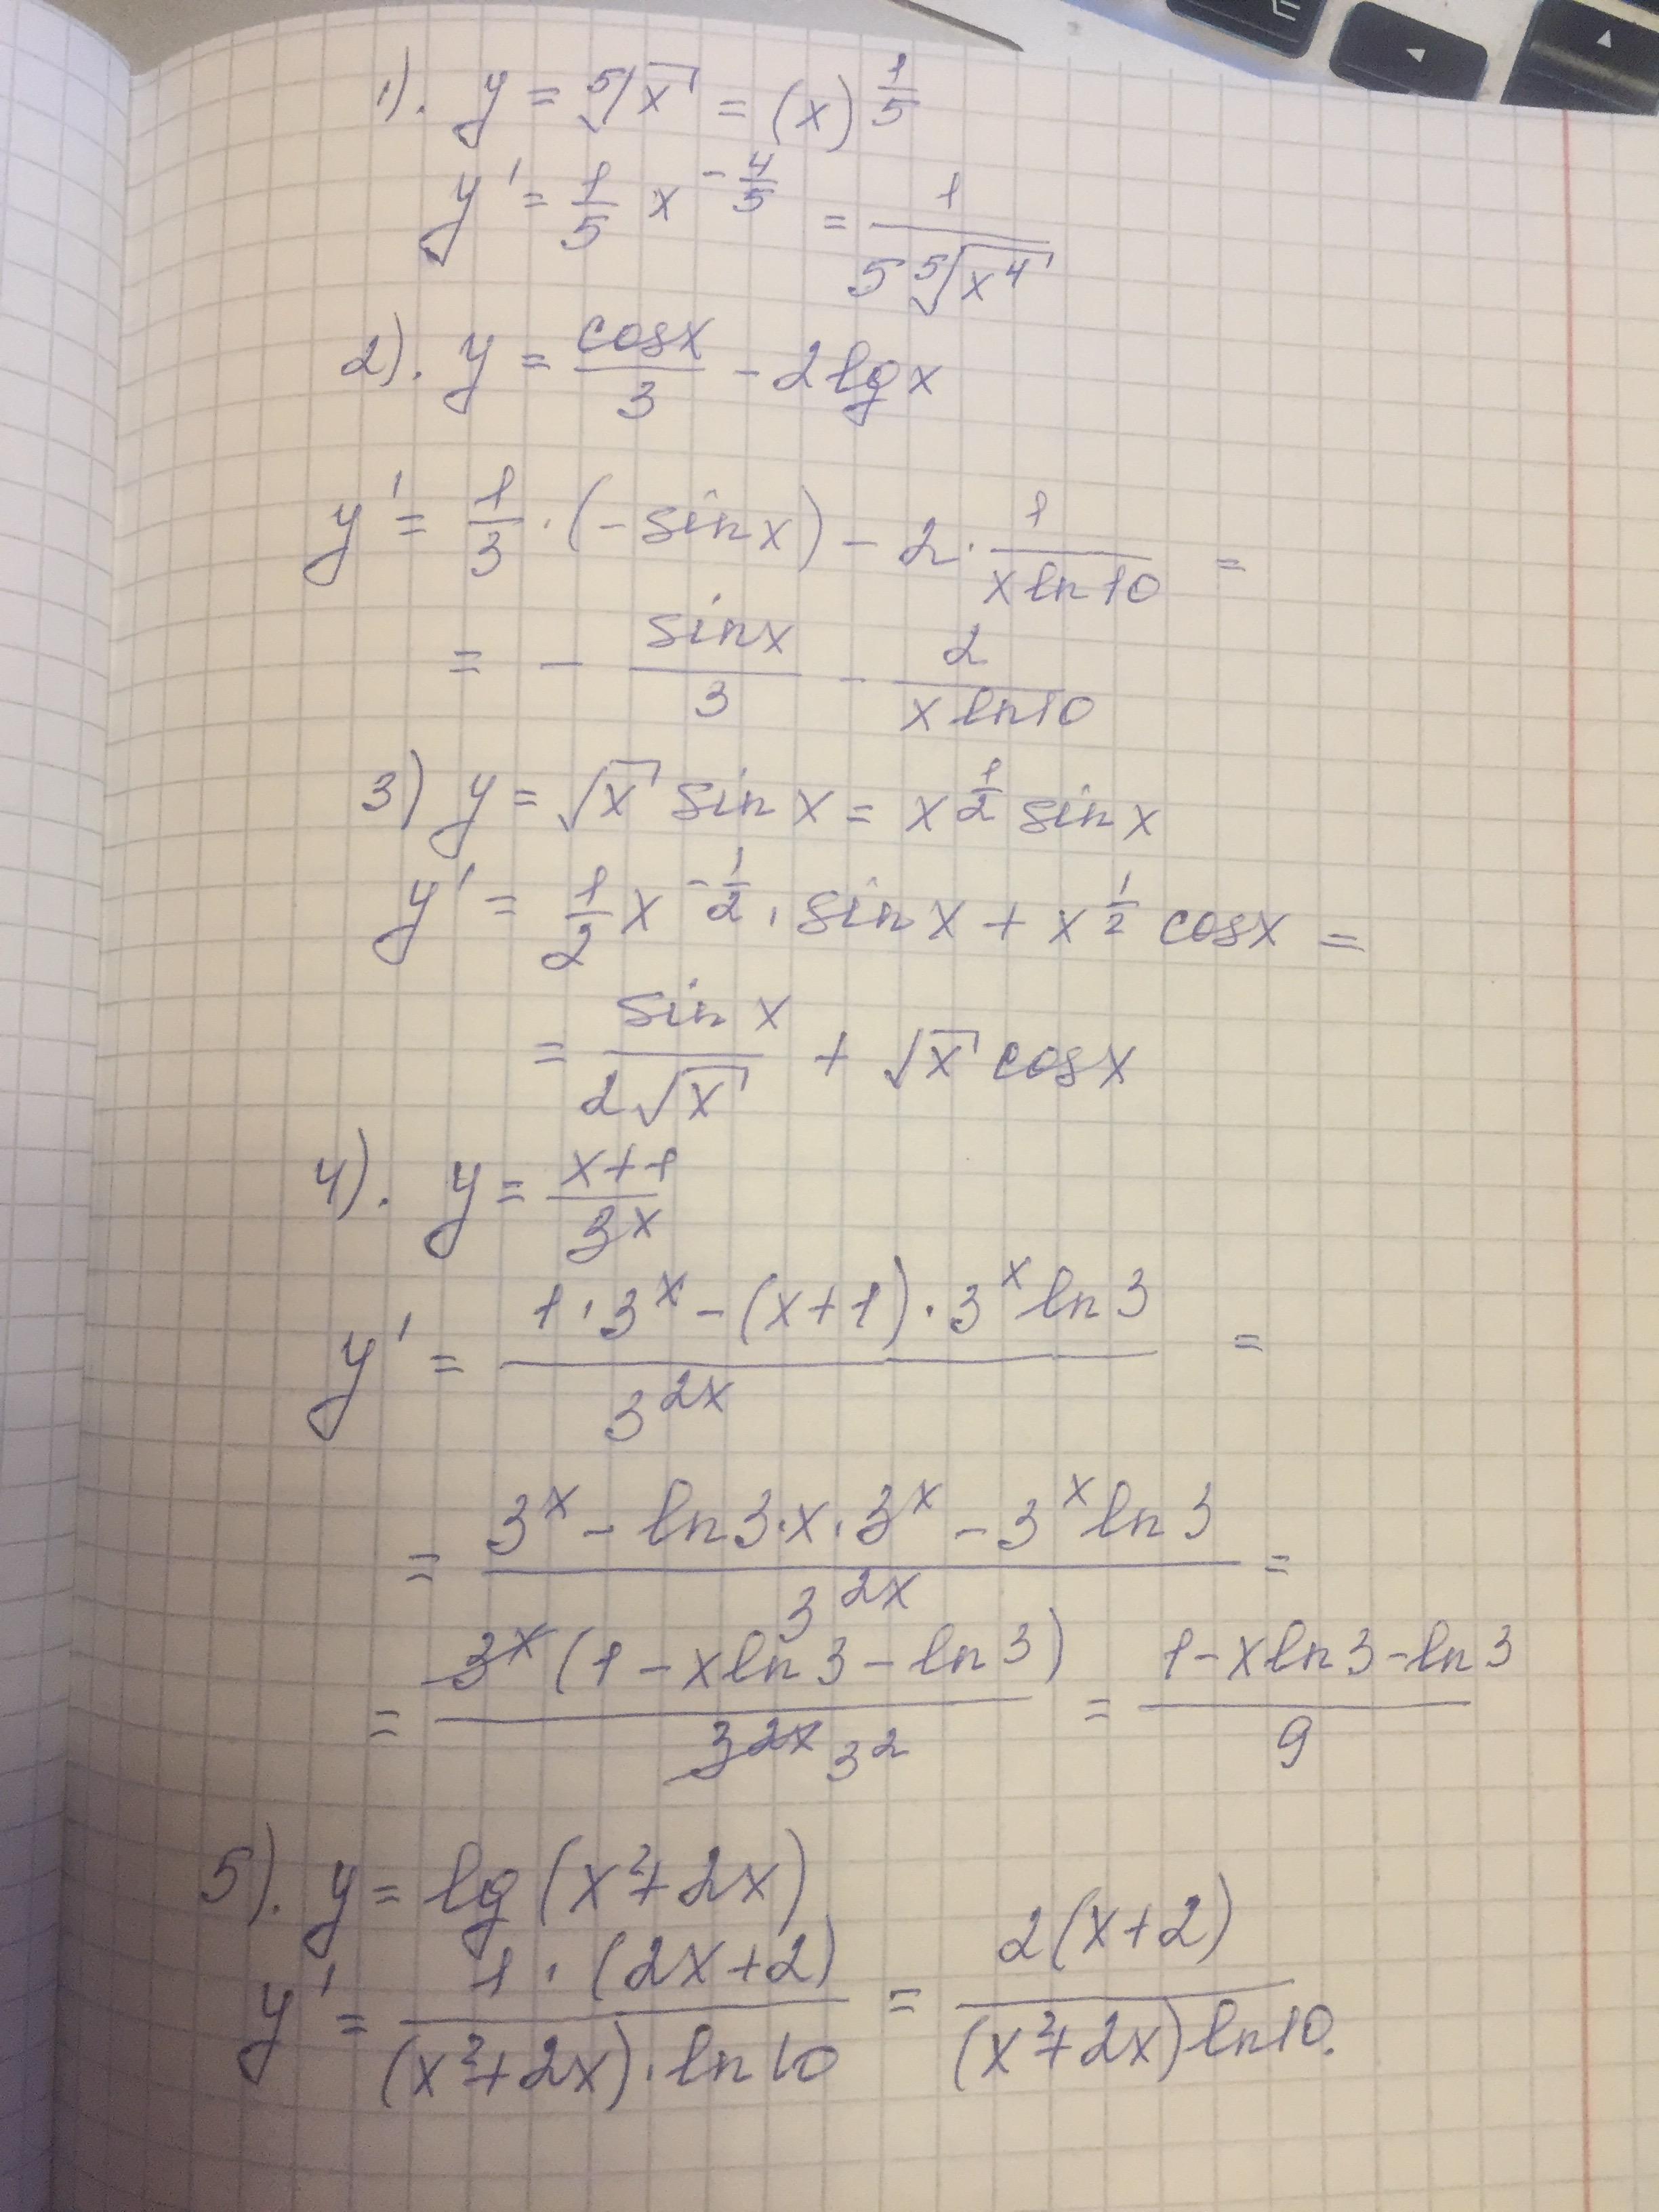 1). y = ⁵√x = (x)^(1/5)
y' = 1/5 x^(-4/5) = 1/(5 ⁵√(x⁴))
2). y = cosx/3 - 2lgx
y' = 1/3 · (-sinx) - 2 · 1/(x ln10) =
= - sinx/3 - 2/(x ln10)
3) y = √x sin x = x^(1/2) sin x
y' = 1/2 x^(-1/2) · sin x + x^(1/2) cosx =
= sin x/(2√x) + √x cosx
4). y = (x+1)/3^x
y' = (1 · 3^x - (x+1) · 3^x ln3)/3^(2x) =
= (3^x - ln3·x·3^x - 3^x ln3)/3^(2x) =
= 3^x (1 - xln3 - ln3)/(3^(2x) 3²) = (1-xln3-ln3)/9
5). y = lg(x²+2x)
y' = 1 · (2x+2)/((x²+2x)·ln10) = 2(x+2)/((x²+2x)ln10).